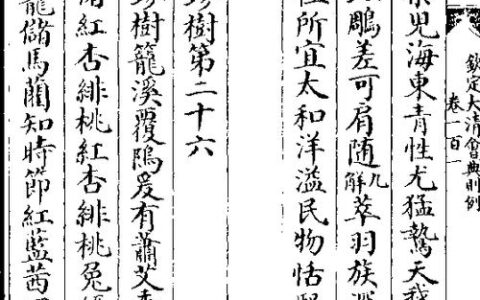 欽定大清會典則例
卷一百一
兒海東青性尤猛鷙天我
雕差可肩随九解萃羽族
所宜太和洋溢民物恬
樹第二十六
樹籠溪覆隖爰有蕭艾
紅杏緋桃紅杏緋桃兔
儲馬藺知時節紅藍茜